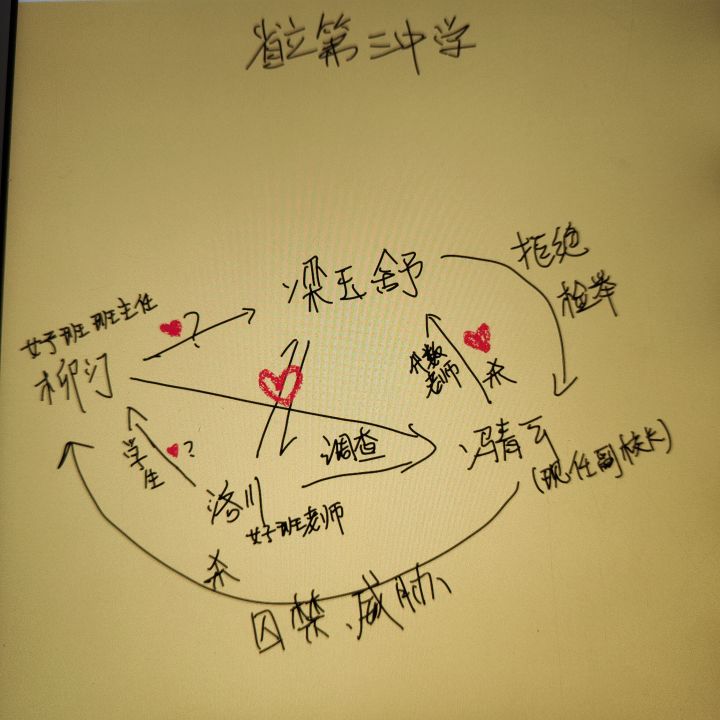 省立第三中学
拒绝
检举
梁玉舒
女子班班主任
?
柳汀
代数
老师
杀
冯青云
(现任副校长)
调查
学生
?
洛川
女子班老师
杀
囚禁、威胁